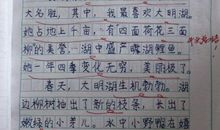 大名胜,其中,我最喜欢大明湖。
她占地上千亩,有四面荷花三面
柳的美誉,湖中盛产鸣湖鲤鱼。
她一年四季变化无穷,美丽极了。
春天,大明湖生机勃勃。湖
边柳树抽出了新的枝条,长出了
嫩绿的小芽儿。水中小野鸭在嬉